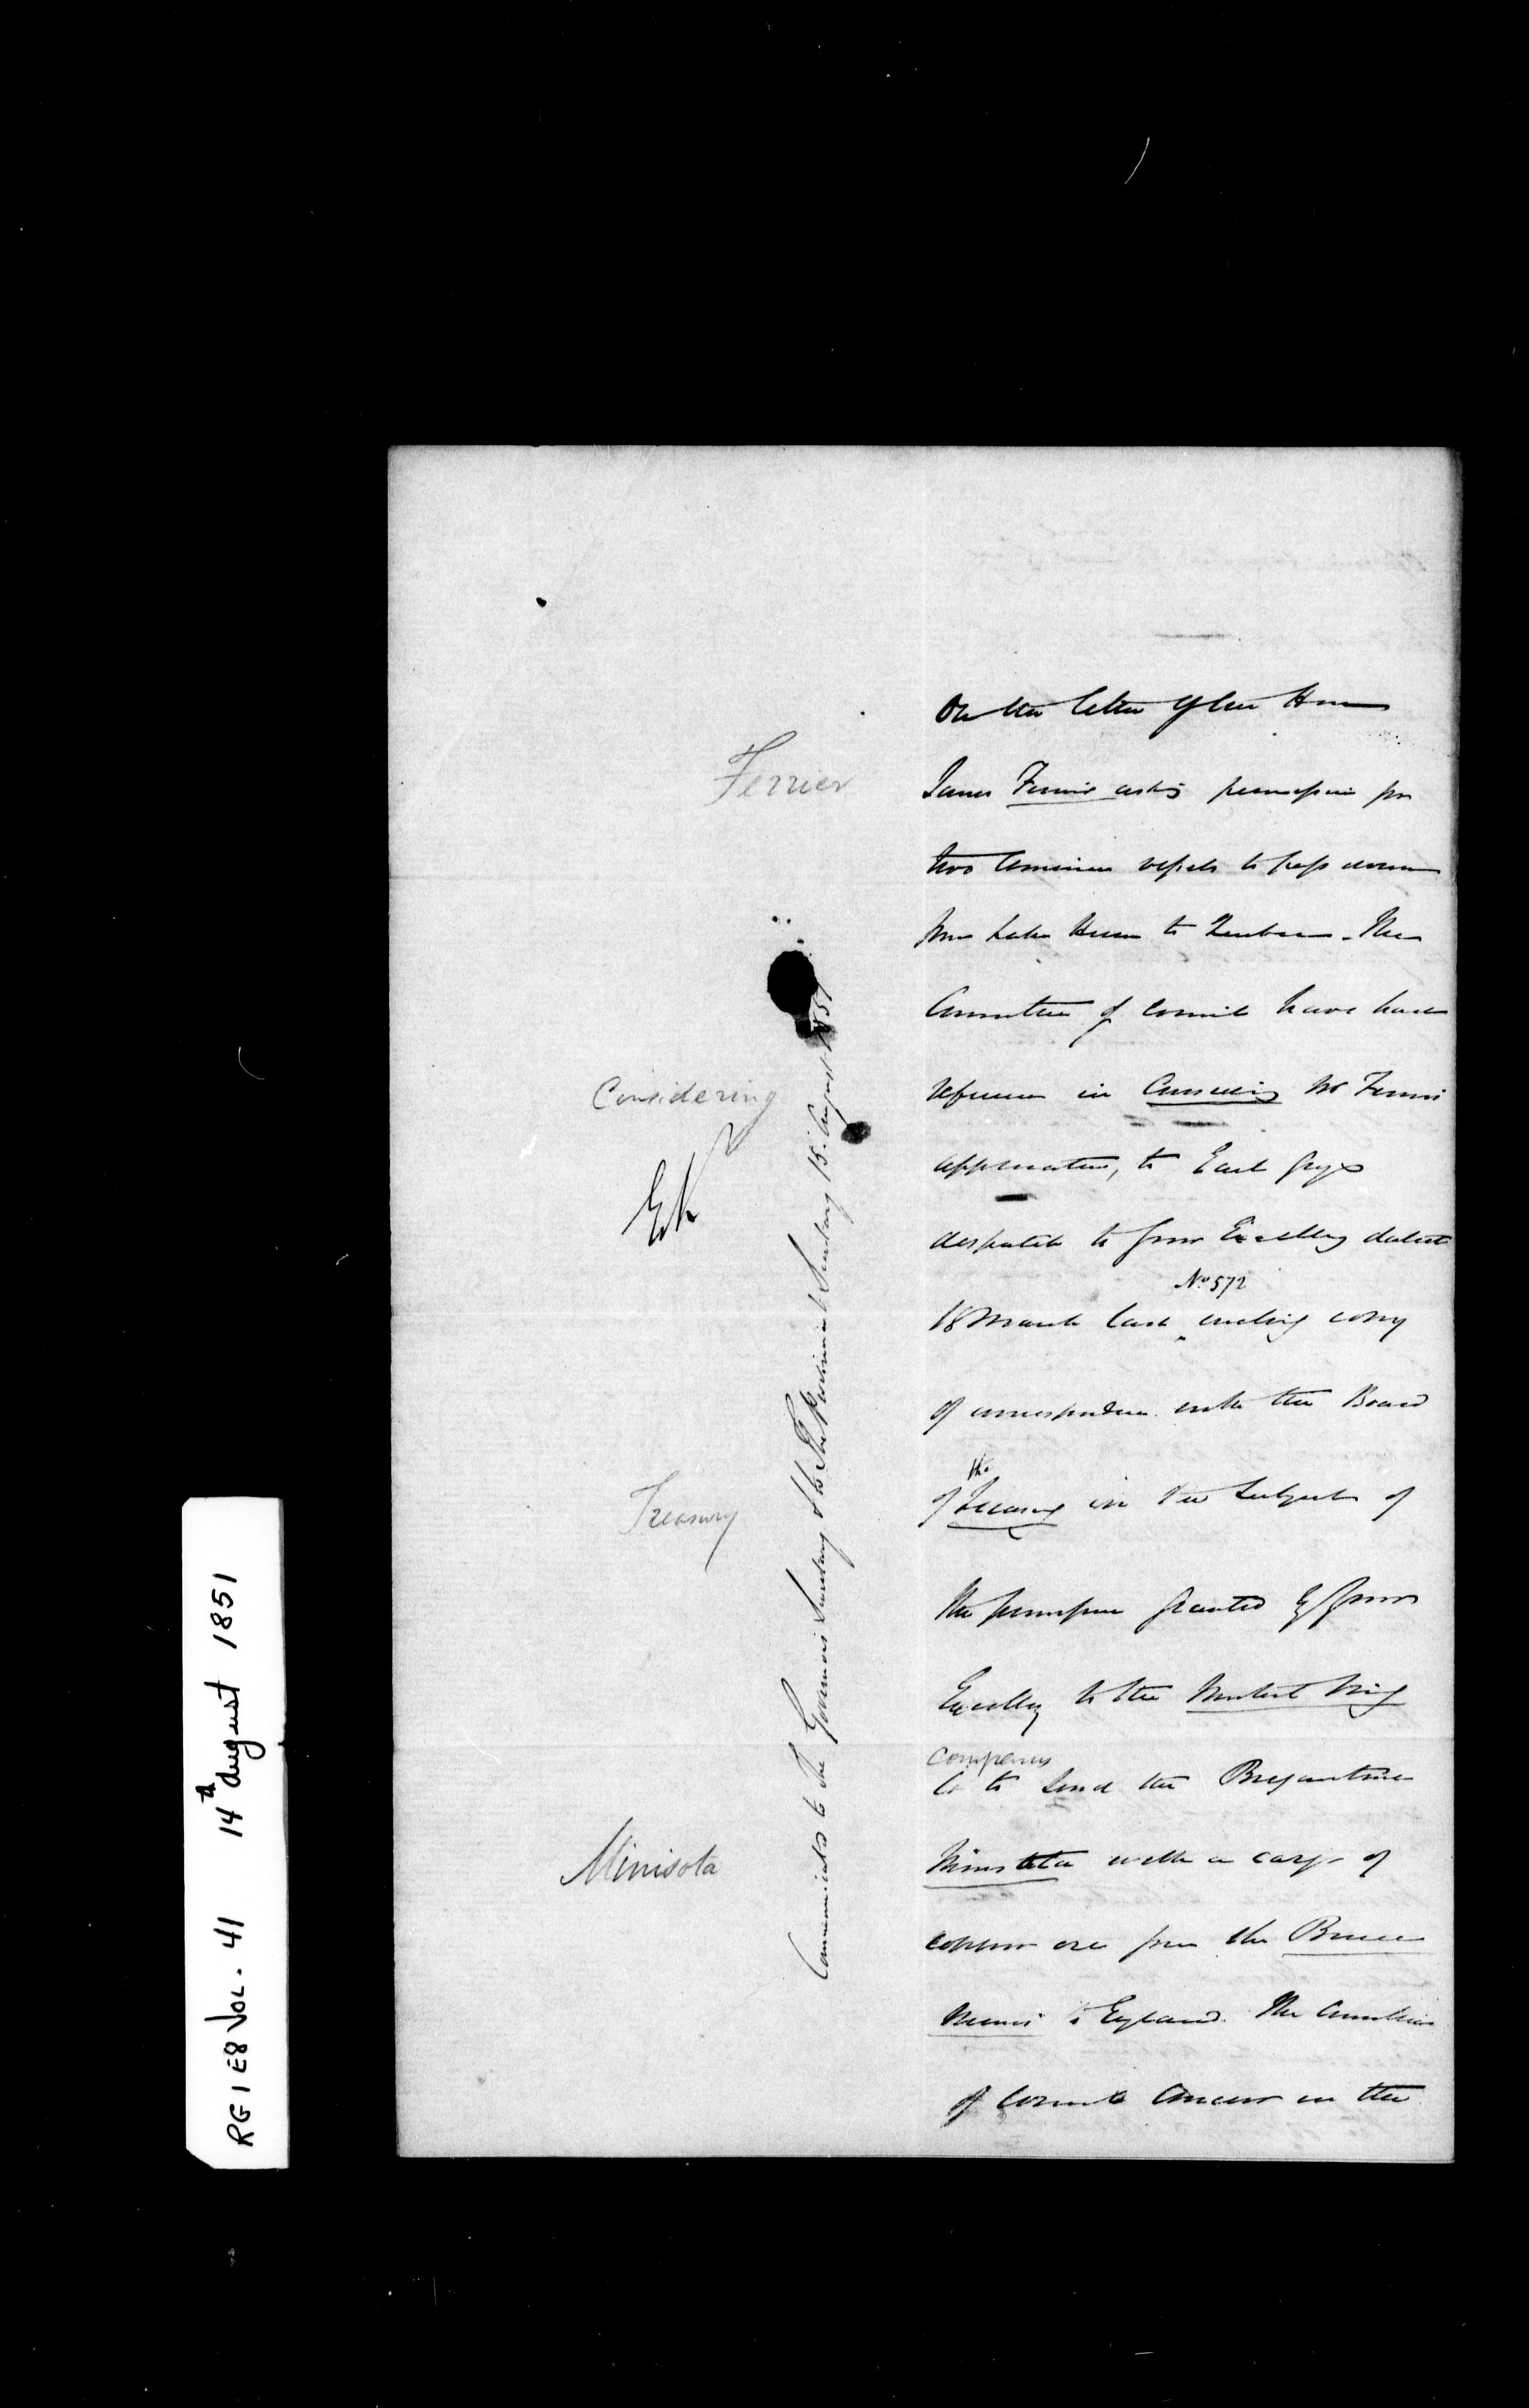 On the letter of the Hon
James Ferrier asking permission for
two American vessels to pass down
from Lake Huron to Quebec. The
Committee of Council have had
reference in Considering Mr Ferrier
application, to Earl Grey's
despatch to Your Excellency dated
No 572
18 March last encling copy
of correspondence with the Board
the
of Treasury on the subject of
the permission granted by Your
Excellency to the Montreal Ming
Companys
Co to send the Brigantine
Minisota with a cargo of
copper ore from the Bruce
Mines to England. The Committee
of Council concur in the
Ferrier
Considering
Treasury
Minisota
Communicated to the Governors Secretary & to The Provincial Secretary 15. August 1851
RG 1 E8 VOL. 41 14th August 1851